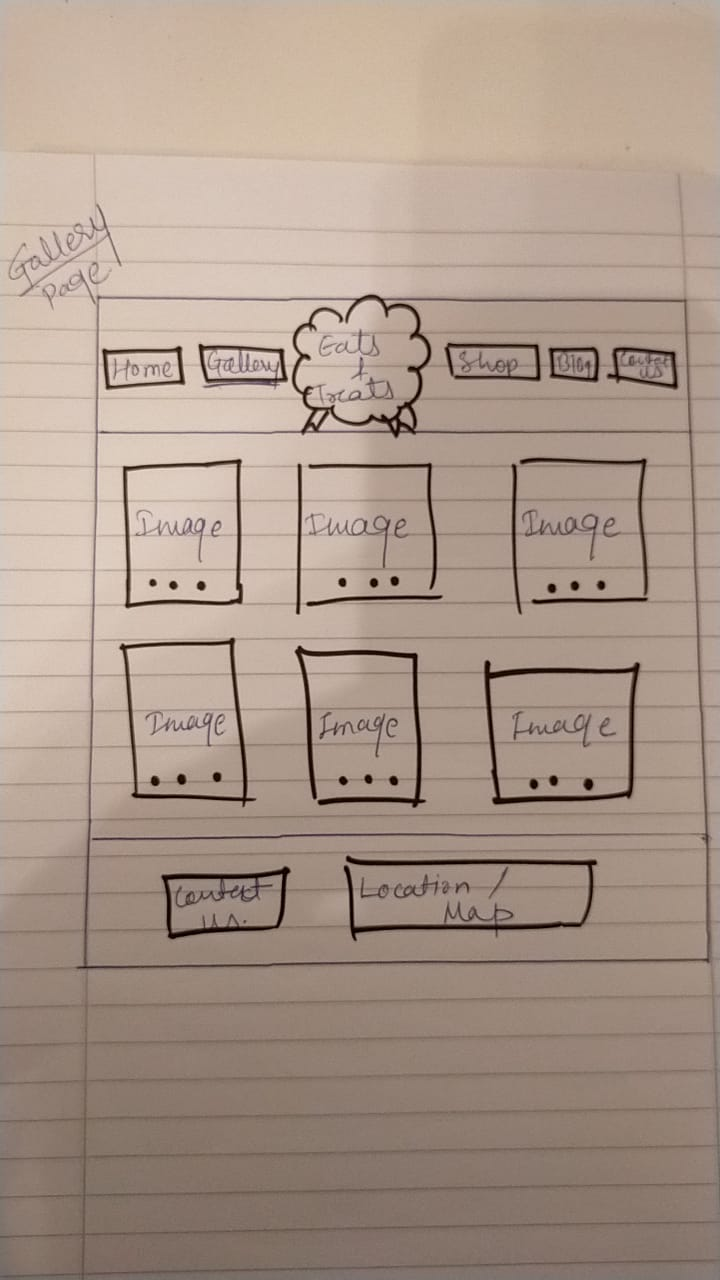 Gallery
Page
Home
Gallery
Eats
&
Treats
Shop
Blog
Contact
us
Image
Image
Image
Image
Image
Image
Contact
us.
Location /
Map